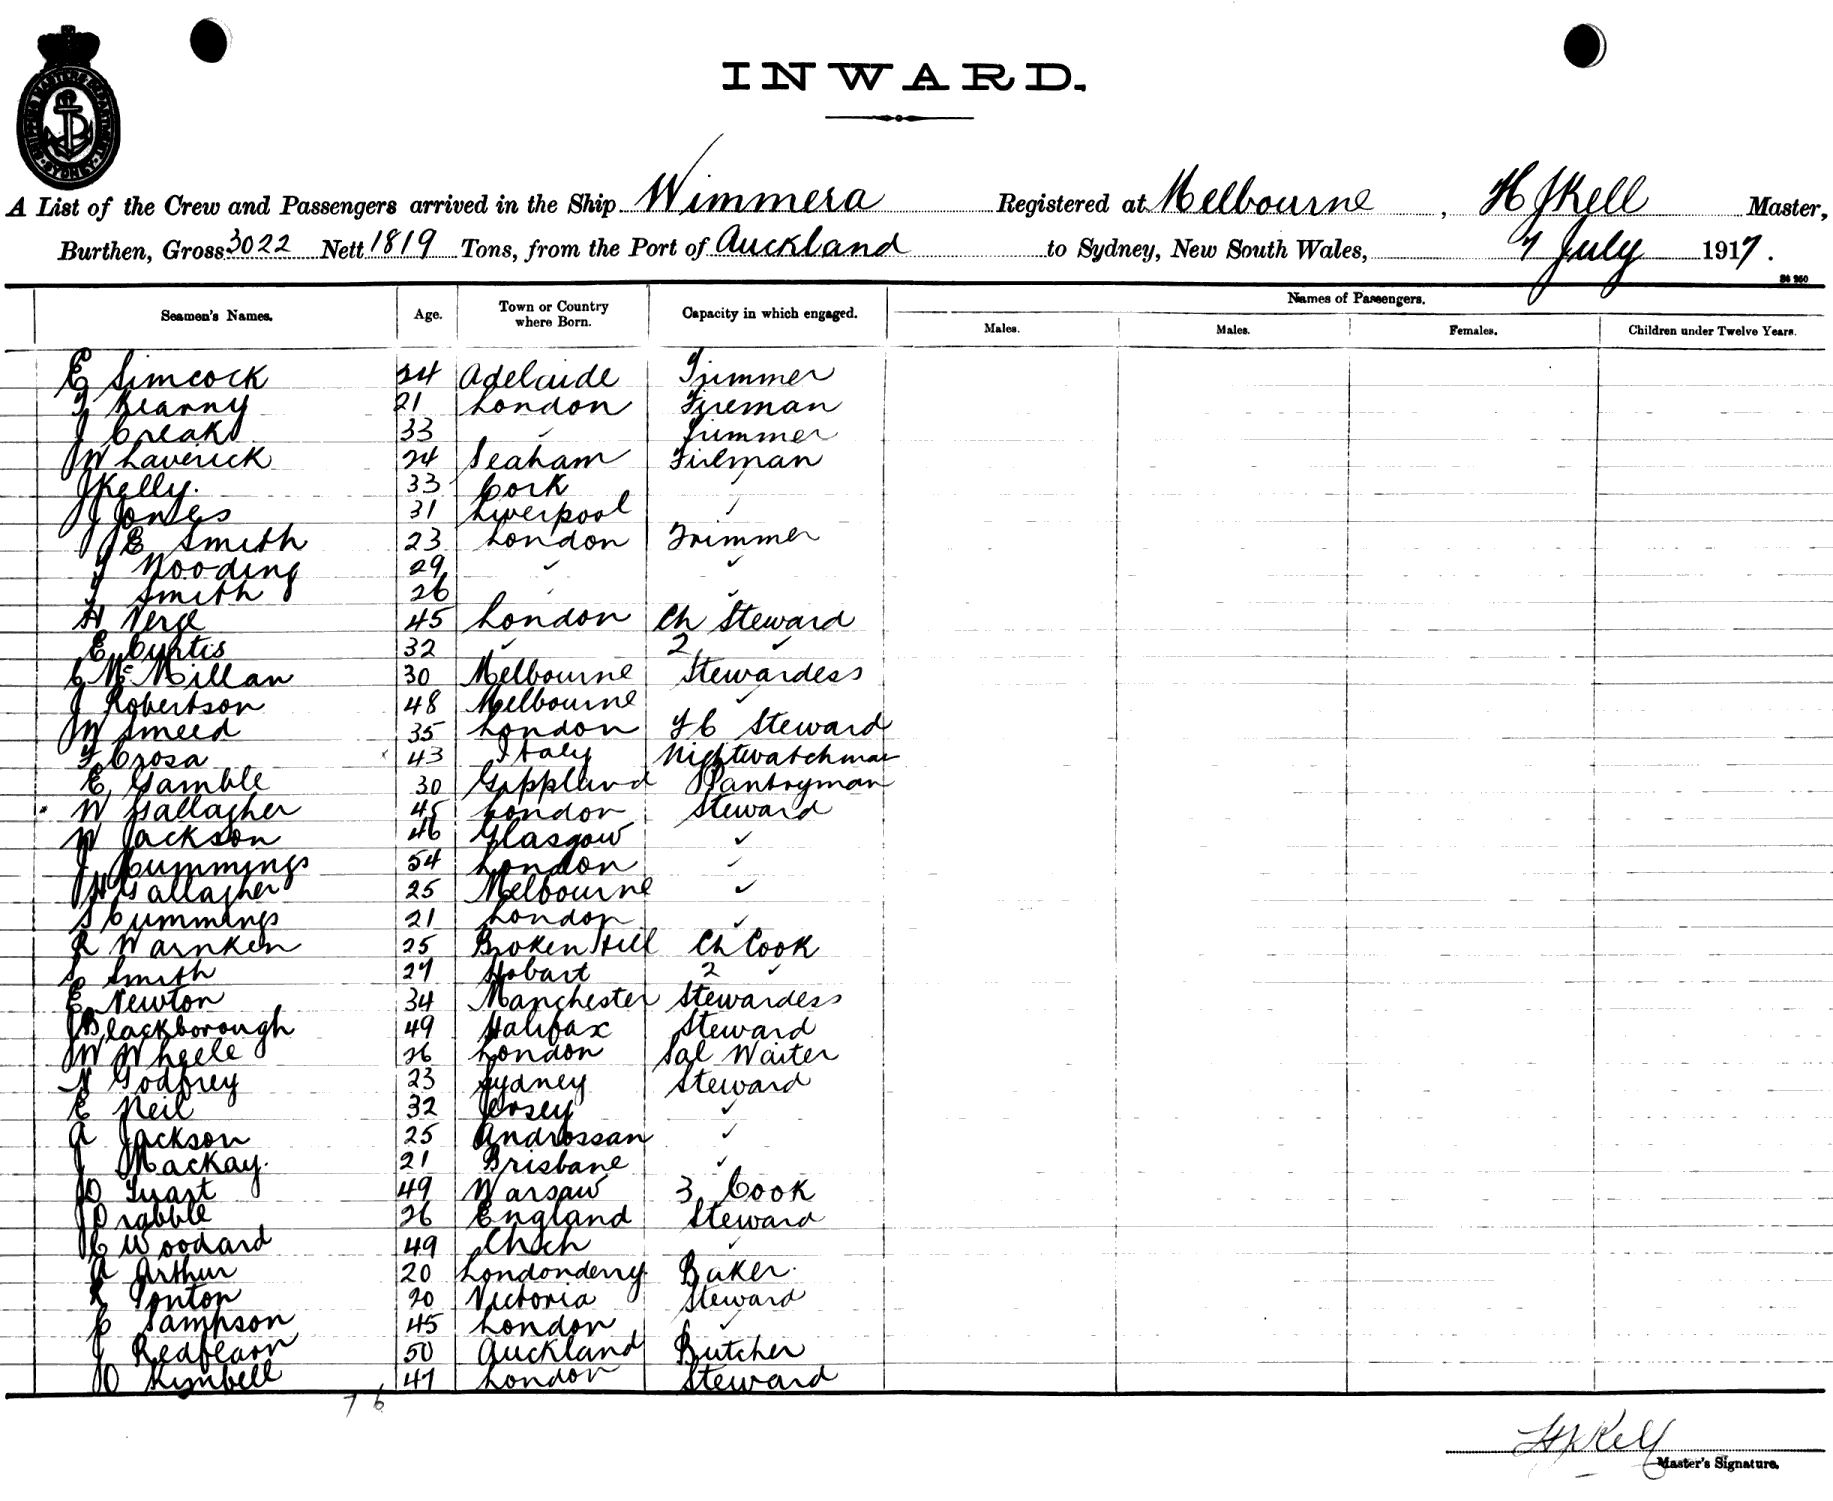 SHIPPING MASTERS DEPARTMENT SYDNEY
INWARD.
A List of the Crew and Passengers arrived in the Ship Wimmera Registered at Melbourne, H J Kell Master,
Burthen, Gross 3022 Nett 1819 Tons, from the Port of Auckland to Sydney, New South Wales, 7 July 1917.
S4 250
Seamen's Names. Age. Town or Country where Born. Capacity in which engaged. Names of Passengers.
Males. Males. Females. Children under Twelve Years.
E Simcock 24 Adelaide Trimmer
T Kearny 21 London Fireman
J Creak 33 ✓ Trimmer
W Laverick 24 Seaham Fireman
J Kelly. 33 Cork ✓
J Jones 31 Liverpool ✓
J E Smith 23 London Trimmer
T Nooding 29 ✓ ✓
T Smith 26 ✓ ✓
H Verge 45 London Ch Steward
E Curtis 32 ✓ 2 ✓
C McMillan 30 Melbourne Stewardess
J Robertson 48 Melbourne ✓
W Smeed 35 London F C Steward
F Crosa 43 Italy Nightwatchman
E Gamble 30 Gippland Pantryman
W Gallagher 45 London Steward
W Jackson 46 Glasgow ✓
J Cummings 54 London ✓
H Gallagher 25 Melbourne ✓
S Cummings 21 London ✓
R Warnken 25 Broken Hill Ch Cook
S Smith 27 Hobart 2 ✓
E Newton 34 Manchester Stewardess
J Blackborough 49 Halifax Steward
W Wheele 26 London Sal Waiter
N Godfrey 23 Sydney Steward
E Neil 32 Jersey ✓
A Jackson 25 Androssan ✓
J Mackay. 21 Brisbane ✓
D 49 Warsaw 3 Cook
J Drabble 26 England Steward
C Woodard 49 Chch ✓
A Arthur 20 Londonderry Baker.
R Ponton 20 Victoria Steward
C Sampson 45 London ✓
J Redfearn 50 Auckland Butcher
D Kimbell 47 London Steward
76
H J Kell
Master's Signature.